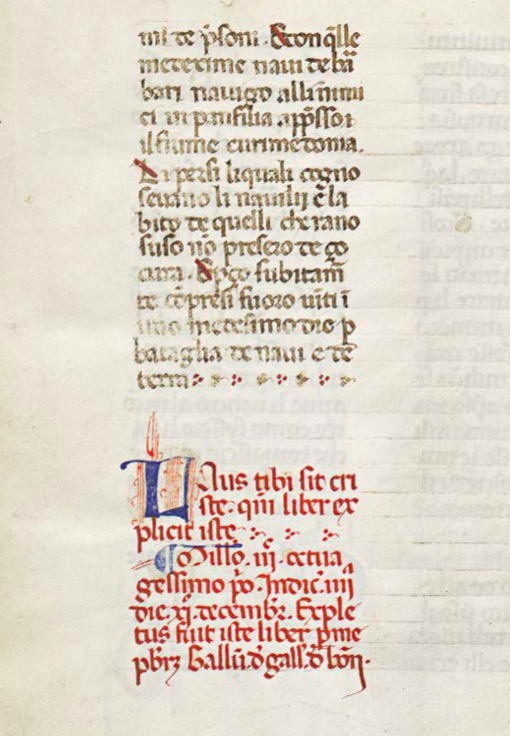 ni de p̄soni. E con q̄lle
medexime naui de bā
bari nauigo alli nimi
ci in panfilia app̄sso i
il fiume curimedonia.
Li persi li quali cogno
sceuano li nauilij ⁊ la
bito de quelli che rano
suso nō presero de go
cura. E p̄ço subitam̄
te cōpresi fuoro uīti ī
uno medesimo dio p
bataglia de naui e de
terra
Laus tibi sit cri
ste. qm̄ liber ex
plicit iste
Millo. iij. octua
gessimo p̄o. Indic̄. iiij
die. xj. decembr̄. Exple
tus fuit iste liber p̄ me
pb̄rȝ Gallū d̄ gall̄. d̄ bōn.